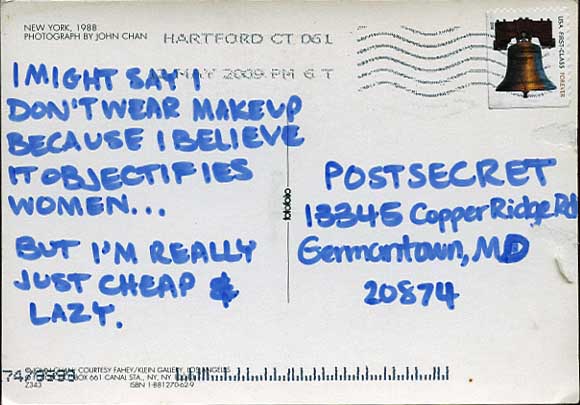 NEW YORK, 1988
PHOTOGRAPH BY JOHN CHAN
HARTFORD CT 061
MAY 2009 PM 6 T
USA FIRST-CLASS FOREVER
I MIGHT SAY I
DON'T WEAR MAKEUP
BECAUSE I BELIEVE
IT OBJECTIFIES
WOMEN...
BUT I'M REALLY
JUST CHEAP &
LAZY.
fotofolio
POSTSECRET
13345 Copper Ridge Rd
Germantown, MD
20874
COURTESY FAHEY/KLEIN GALLERY, LOS ANGELES
BOX 661 CANAL STA., NY, NY
Z343 ISBN 1-881270-62-9